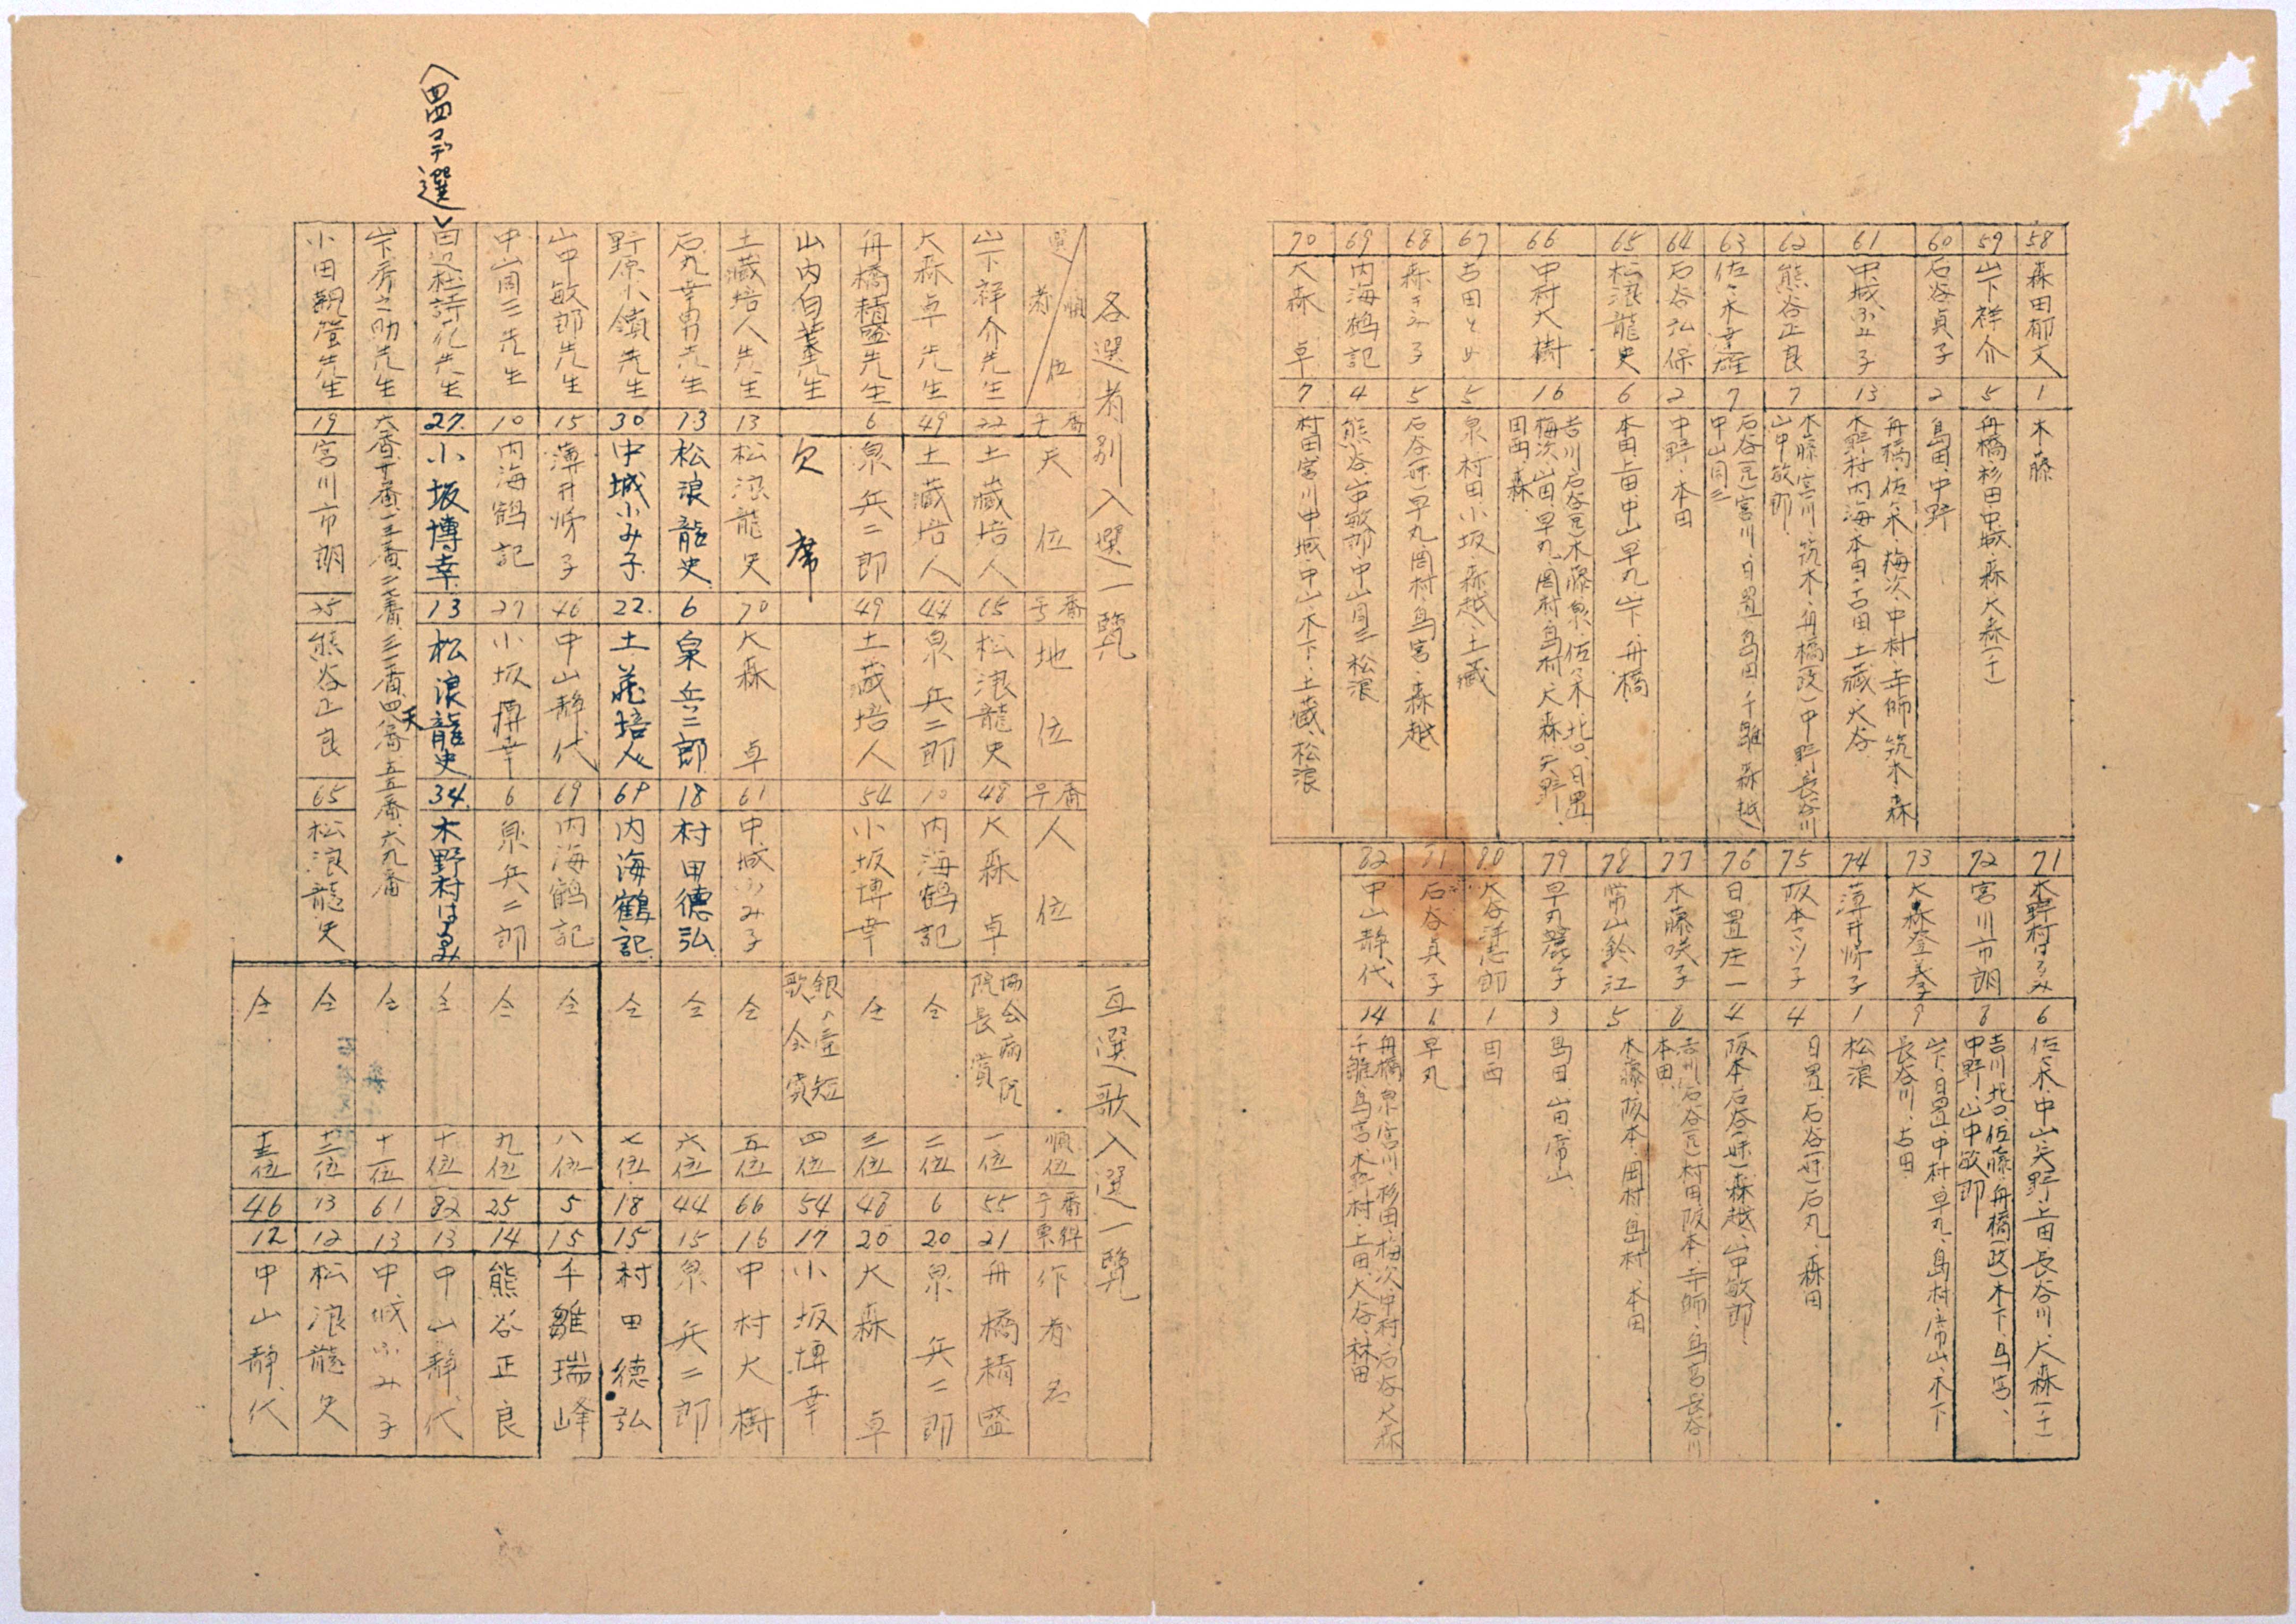 58 森田郁文 1 木藤
59 山下祥介 5 舟橋・杉田・中城・森・大森(千)
60 石谷貞子 2 島田・中野
61 中城ふみ子 13 舟橋・佐々木・梅次・中村・寺師・筑木・森
木野村・内海・本田・古田・土蔵・大谷
62 熊谷正良 7 木藤・宮川・筑木・舟橋(政)中野・長谷川
山中敏郎
63 佐々木幸雄 7 石谷(元)宮川・日置・島田・千雛・森越
中山周三
64 石谷弘保 2 中野・本田
65 松浪龍史 6 本田・上田・中山・早丸・山下・舟橋
66 中村大樹 16 吉川・石谷(元)木藤・泉・佐々木・北口・日置
梅次・山田・早丸・岡村・島村・大森・矢野・
田西・森
67 古田とめ 5 泉・村田・小坂・森越・土蔵
68 森きみ子 5 石谷(妹)早丸・岡村・鳥宮・森越
69 内海鶴記 4 熊谷・山中敏郎・中山周三・松浪
70 大森卓 7 村田・宮川・中城・中山・木下・土蔵・松浪
71 木野村はるみ 6 佐々木・中山・矢野・上田・長谷川・大森(千)
72 宮川市朗 8 吉川・北口・佐藤・舟橋(政)木下・鳥宮、
中野・山中敏郎
73 大森登美子 9 山下・日置・中村・早丸・島村・常山・木下
長谷川・古田
74 薄井愽子 1 松浪
75 阪本マツ子 4 日置・石谷(妹)石丸・森田
76 日置庄一 4 阪本・石谷(妹)森越・山中敏郎
77 木藤咲子 8 吉川・石谷(元)村田・阪本・寺師・鳥宮・長谷川
本田
78 常山鈴江 5 木藤・阪本・岡村・島村・本田
79 早丸 3 島田・山田・常山
80 大谷洋志郎 1 田西
81 石谷貞子 1 早丸
82 中山静代 14 舟橋・泉・宮川・杉田・梅次・中村・石谷・大森
千雛・鳥宮・木野村・上田・大谷・林田
各選者別入選一覧
選者/順位 番号 天位 番号 地位 番号 人位
山下祥介先生 22 土蔵培人 65 松浪龍史 48 大森卓
大森卓先生 49 土蔵培人 44 泉兵二郎 10 内海鶴記
舟橋精盛先生 6 泉兵二郎 49 土蔵培人 54 小坂博幸
山内白葉先生 欠席
土蔵培人先生 13 松浪龍史 70 大森卓 61 中城ふみ子
石丸幸男先生 13 松浪龍史 6 泉兵二郎 18 村田徳弘
野原水嶺先生 30 中城ふみ子 22. 土蔵培人 69 内海鶴記
山中敏郎先生 15 薄井愽子 46 中山静代 69 内海鶴記
中山周三先生 10 内海鶴記 27 小坂博幸 6 泉兵二郎
〈四四ヲ天選〉
田辺杜詩花先生 27. 小坂博幸 13 松浪龍史 34. 木野村はるみ
山下房之助先生 六番・十番・一三番・二七番・三一番・四八番・五五番・六九番
小田観螢先生 19 宮川市朗 25 熊谷正良 65 松浪龍史
互選歌入選一覧
順位 番号 票数 作者名
協会病院院長賞 一位 55 21 舟橋精盛
仝 二位 6 20 泉兵二郎
仝 三位 48 20 大森卓
銀の壺短歌会賞 四位 54 17 小坂博幸
仝 五位 66 16 中村大樹
仝 六位 44 15 泉兵二郎
仝 七位 18 15 村田徳弘
仝 八位 5 15 千雛瑞峰
仝 九位 25 14 熊谷正良
仝 十位 82 13 中山静代
仝 十一位 61 13 中城ふみ子
仝 十二位 13 12 松浪龍史
仝 十三位 46 12 中山静代